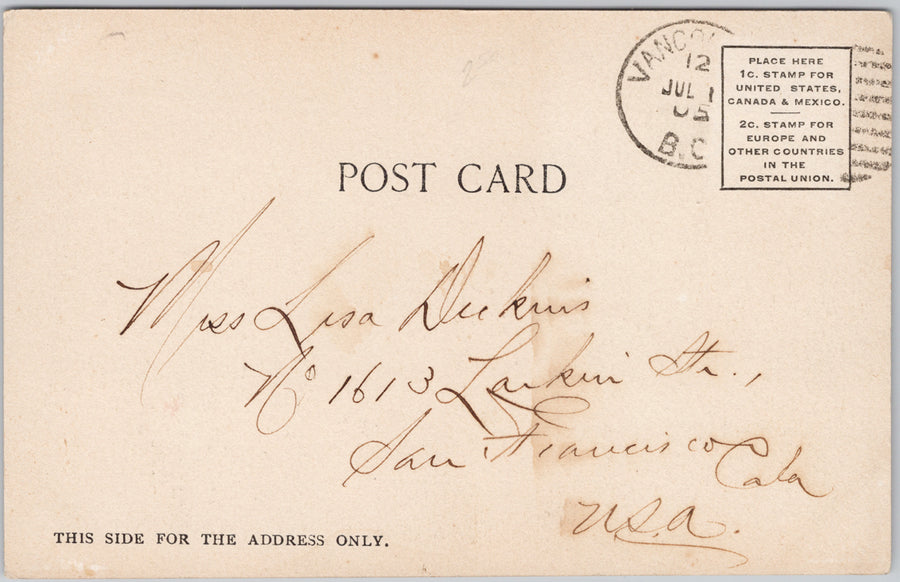 VANCOU
12
JUL 1
05
B.C
PLACE HERE
1C. STAMP FOR
UNITED STATES,
CANADA & MEXICO.
2C. STAMP FOR
EUROPE AND
OTHER COUNTRIES
IN THE
POSTAL UNION.
POST CARD
Miss Lisa Dickins
No 1613 Larkin St.,
San Francisco
Cala
U.S.A.
THIS SIDE FOR THE ADDRESS ONLY.